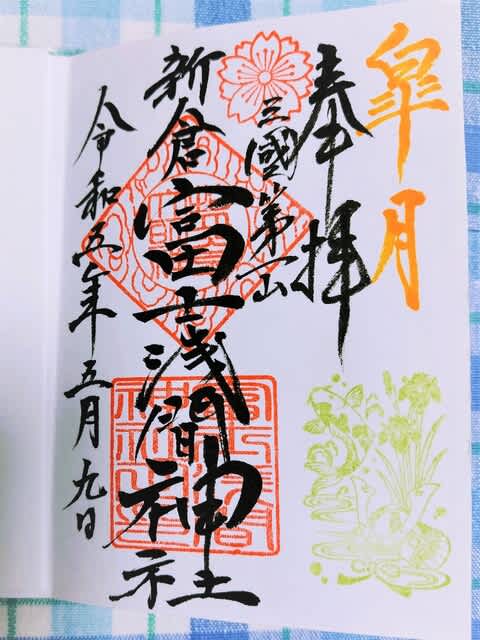 皐月
奉拝
三國第一山
新倉富士浅間神社
令和五年五月九日